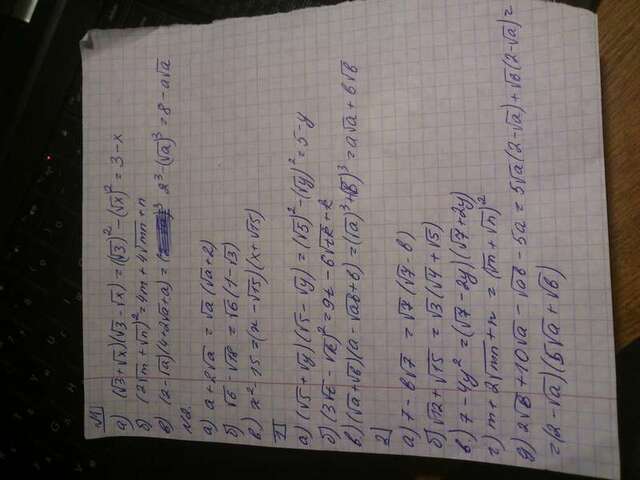 №1
а) (√3+√x)(√3-√x) = (√3)² - (√x)² = 3-x
б) (2√m + √n)² = 4m + 4√mn + n
в) (2-√a)(4+2√a+a) = 2³-(√a)³ = 8-a√a
№2.
а) a+2√a = √a(√a+2)
б) √6-√18 = √6(1-√3)
в) x²-15 = (x-√15)(x+√15)
1
а) (√5+√y)(√5-√y) = (√5)²-(√y)² = 5-y
б) (3√t - √k)² = 9t - 6√tk + k
в) (√a+√b)(a-√ab+b) = (√a)³+(√b)³ = a√a+b√b
2
а) 7-b√7 = √7(√7-b)
б) √12+√15 = √3(√4+√5)
в) 7-4y² = (√7-2y)(√7+2y)
г) m+2√mn+n = (√m+√n)²
д) 2√b+10√a-√ab-5a = 5√a(2-√a)+√b(2-√a) =
= (2-√a)(5√a+√b)